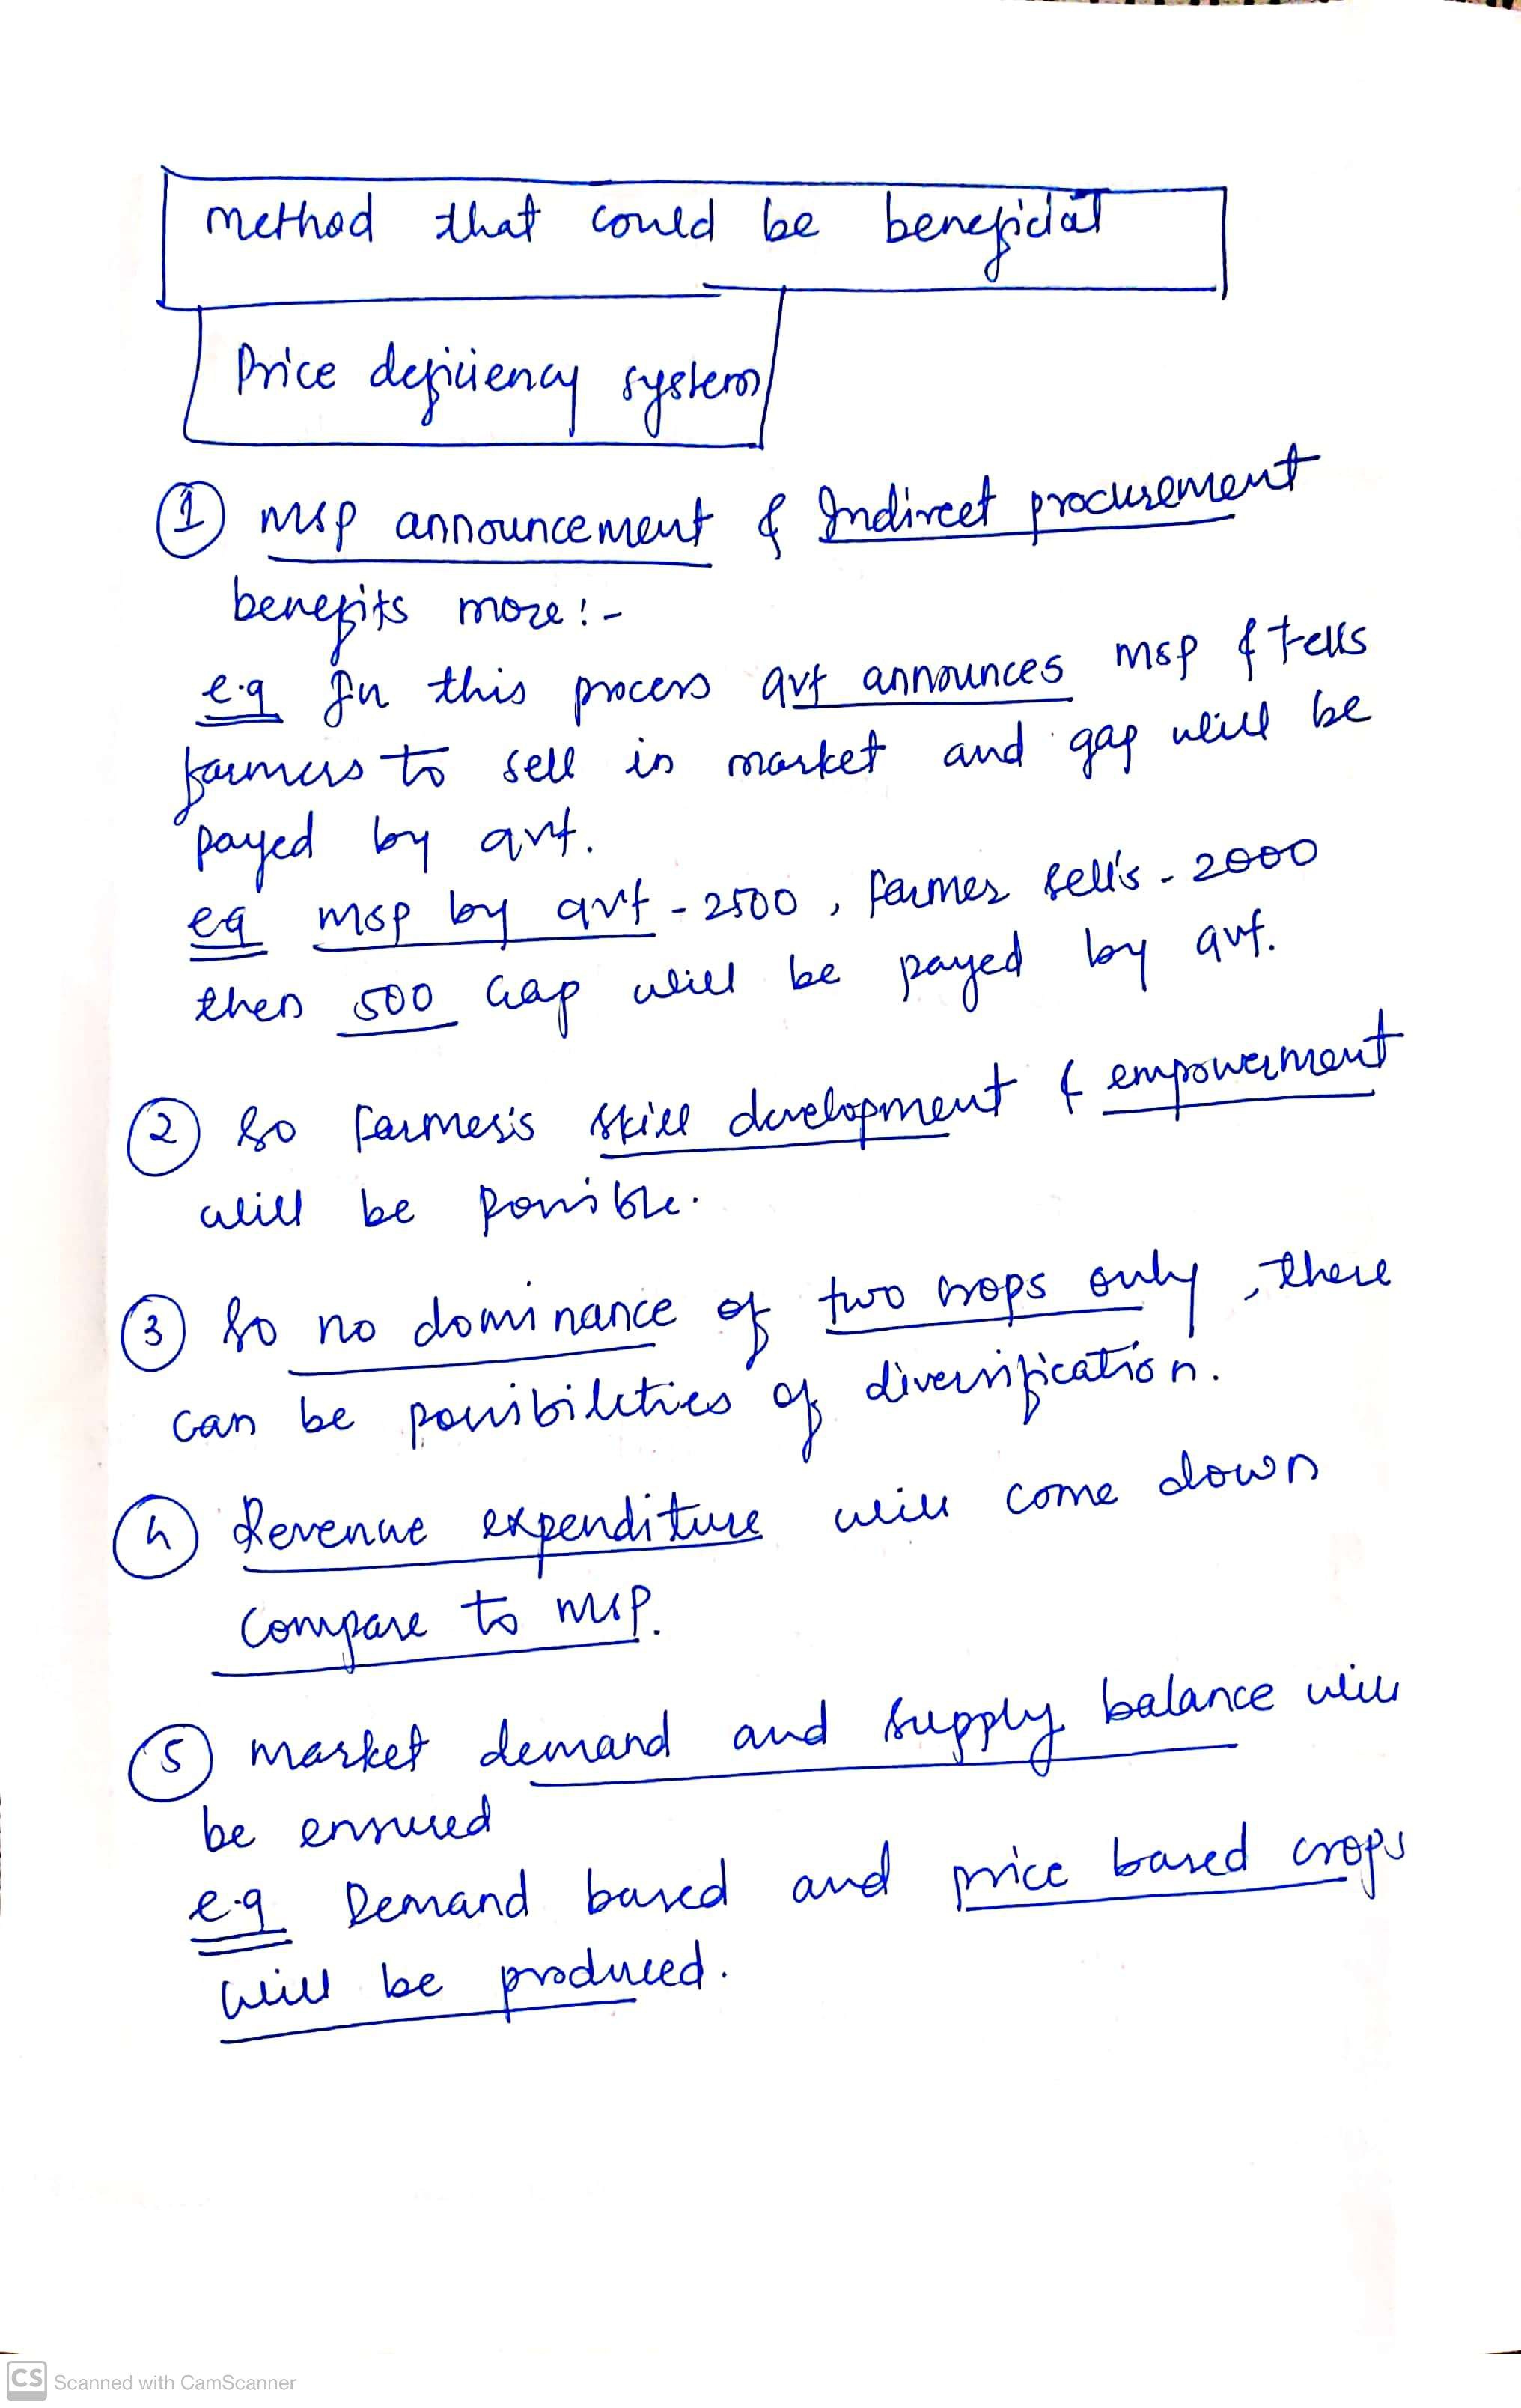 Method that could be beneficial
Price deficiency system
① MSP announcement & Indirect procurement
benefits more:-
e.g In this process gvt announces MSP & tells
farmers to sell in market and gap will be
payed by gvt.
eg MSP by gvt - 2500, Farmer sell's - 2000
then 500 Gap will be payed by gvt.
② So Farmer's skill development & empowerment
will be possible.
③ So no dominance of two crops only, there
can be possibilities of diversification.
④ Revenue expenditure will come down
Compare to MSP.
⑤ market demand and supply balance will
be ensured
e.g Demand based and price based crops
will be produced.
CS Scanned with CamScanner